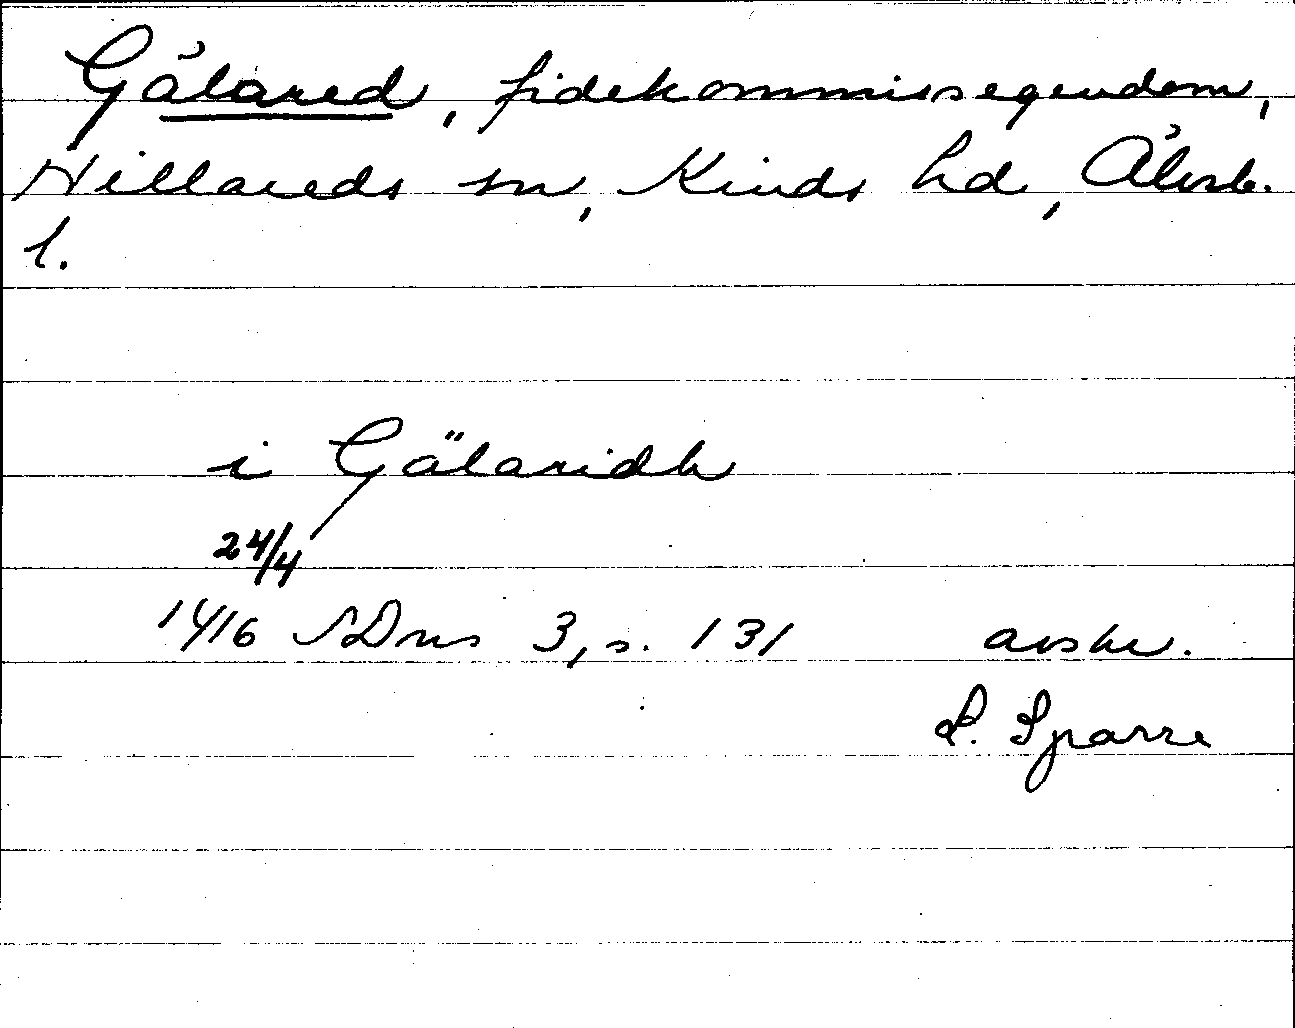 Gålared, fidekommissegendom,
Hillareds sn, Kinds hd, Älvsb.
l.
i Gälaridh
24/4
1416 SDns 3, s. 131 avskr.
L. Sparre